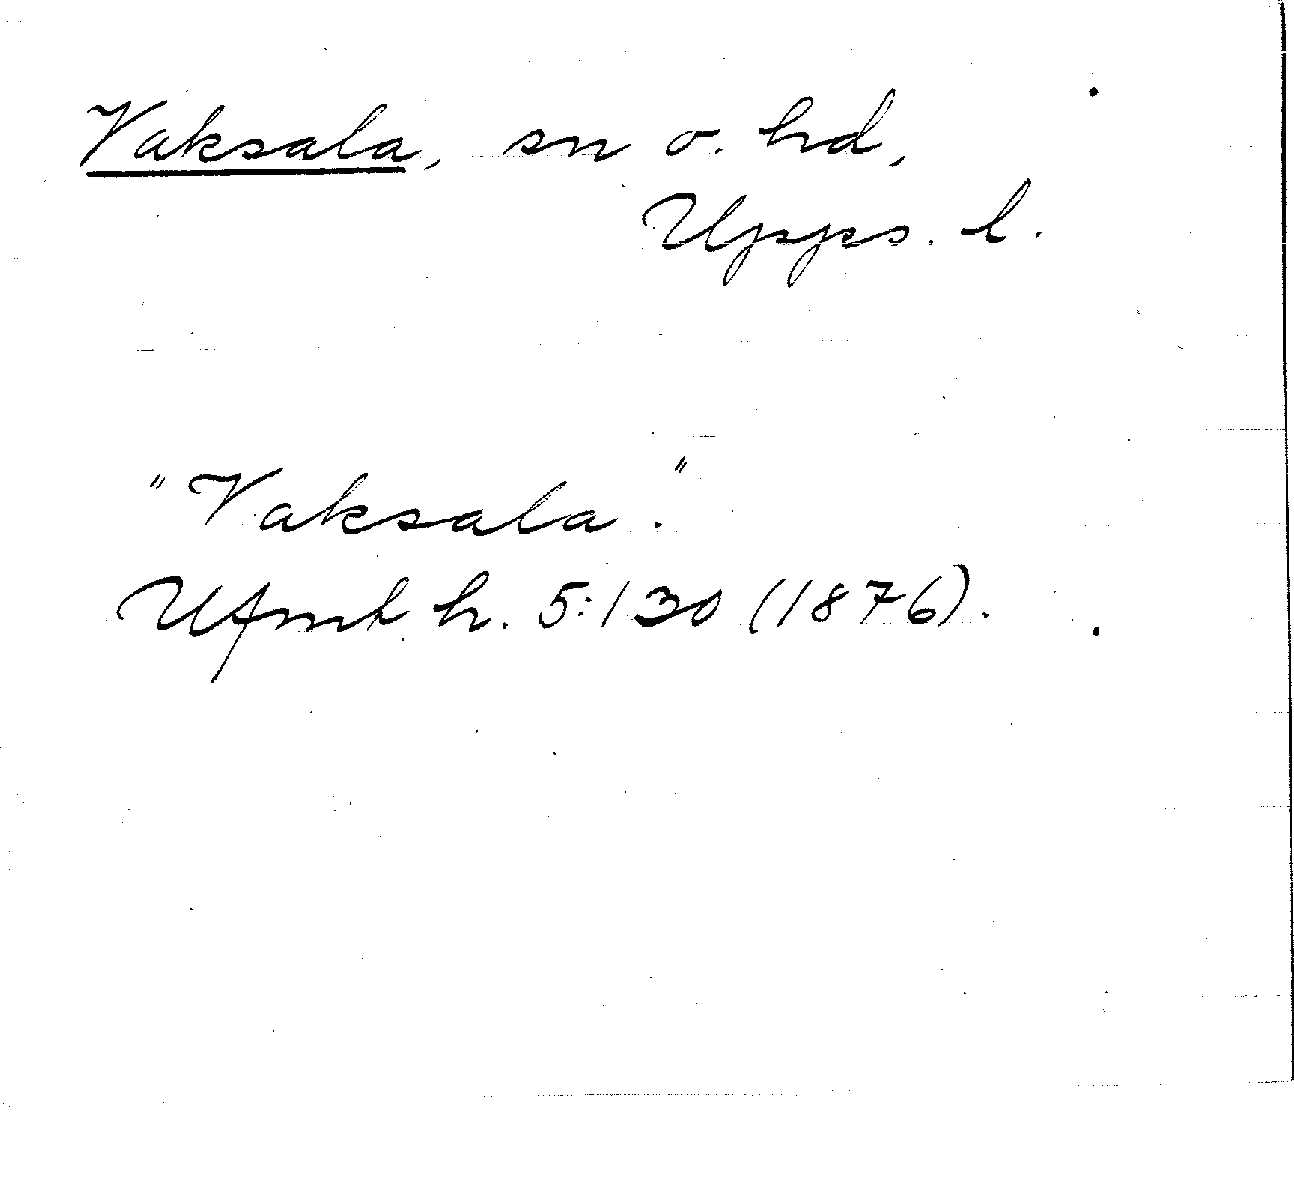 Vaksala, sn o. hd,
Upps. l.
"Vaksala."
Ufmt h. 5:130 (1876).